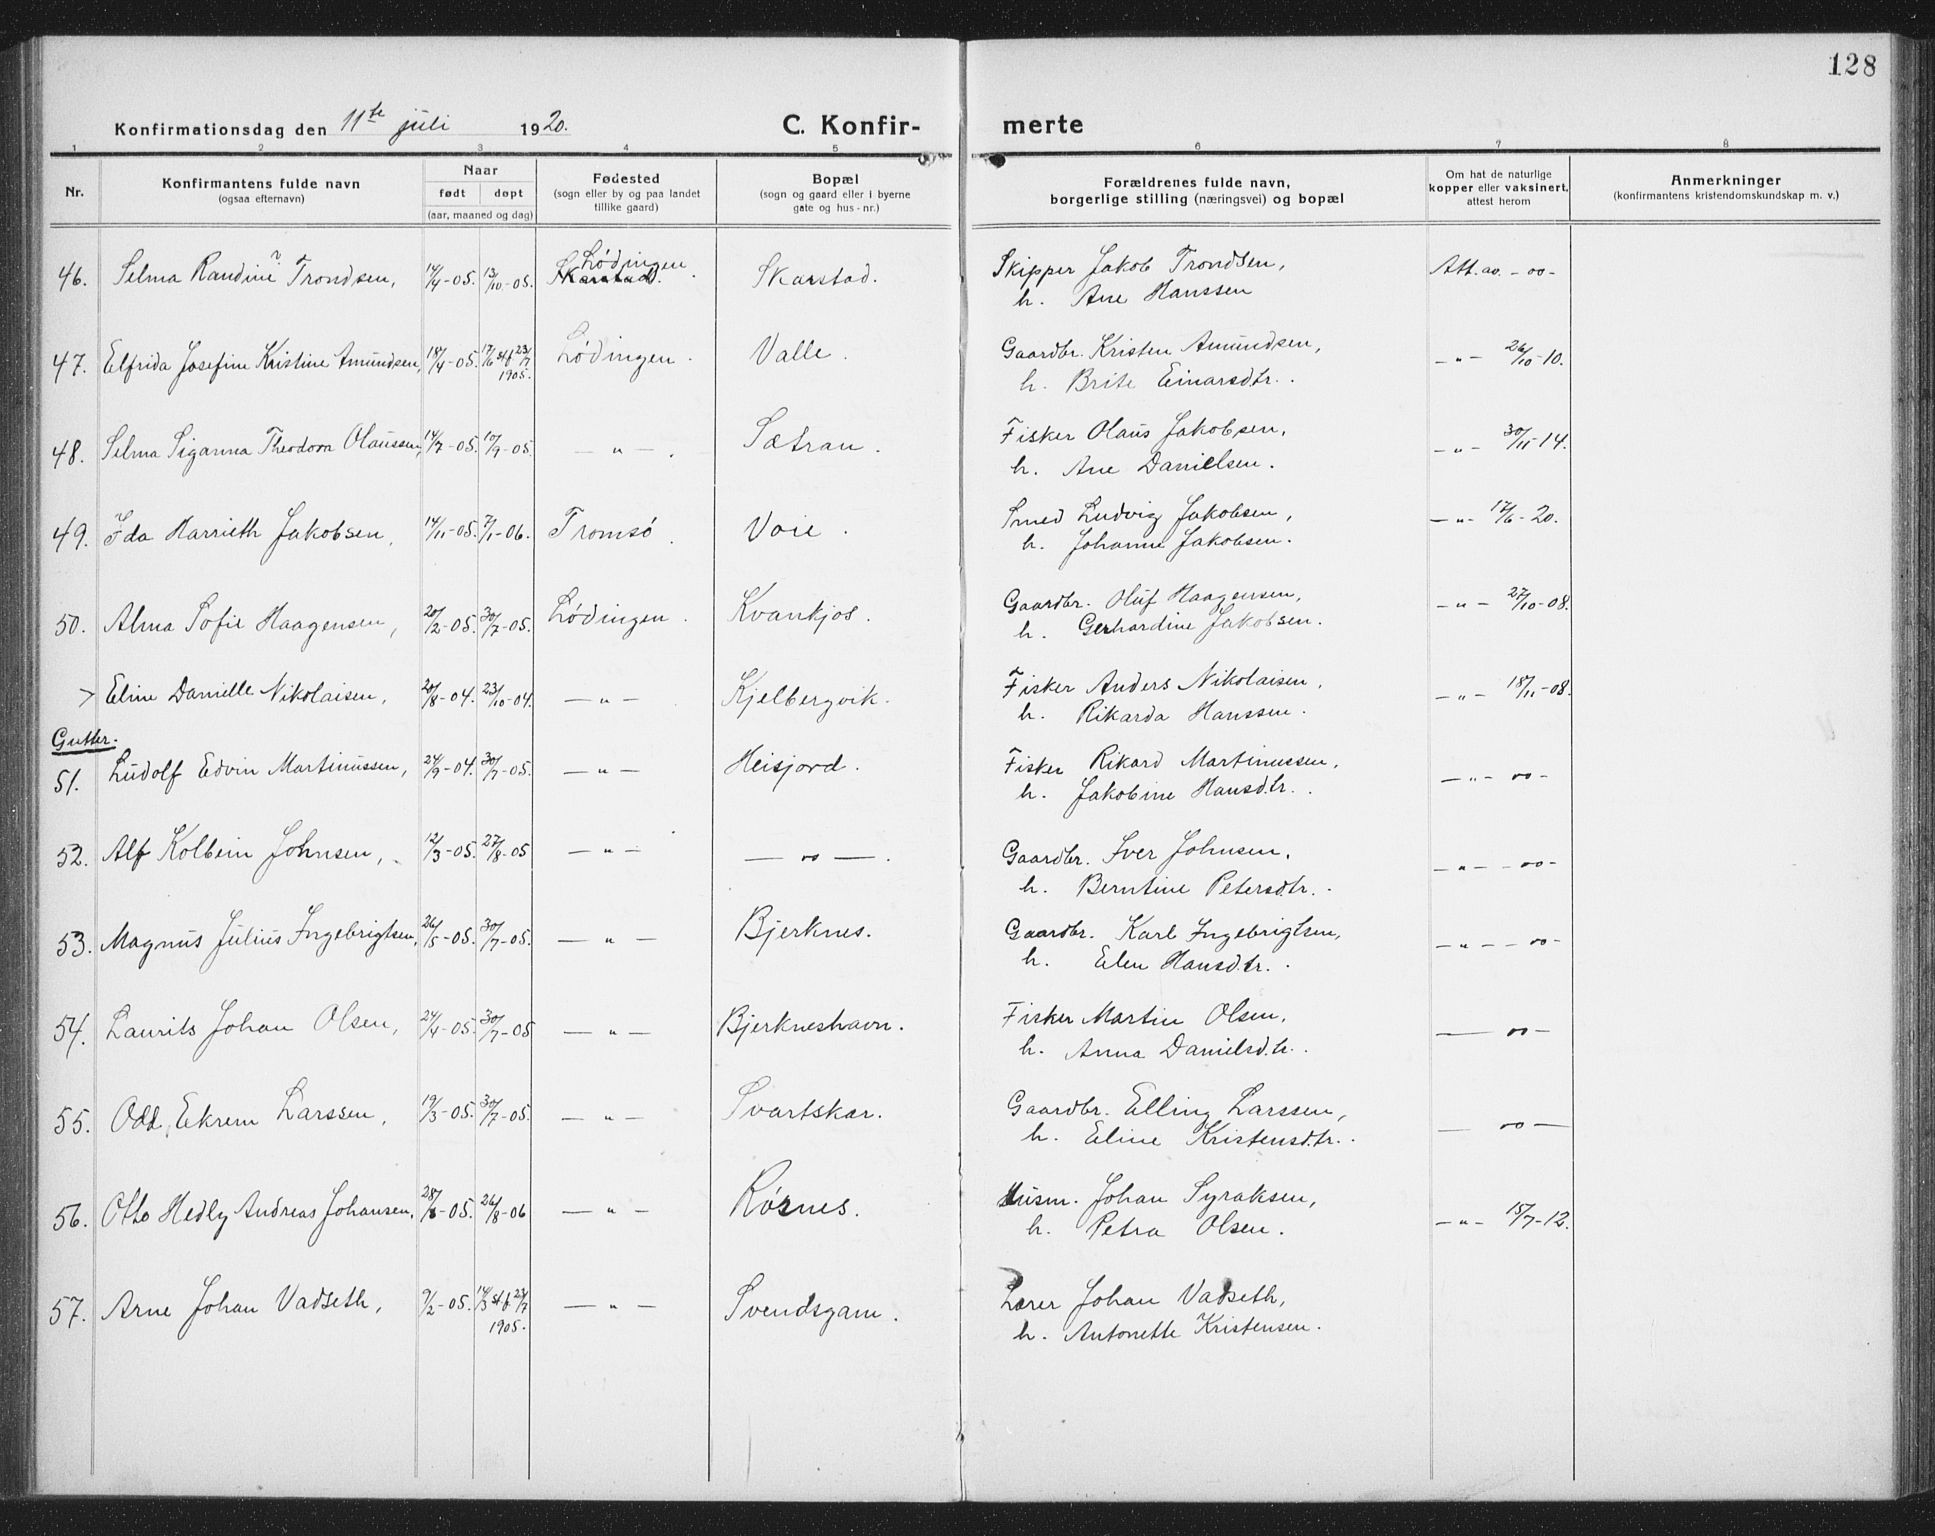 128
Konfirmationsdag den 11te juli 1920. C. Konfirmerte
1 2 3 4 5 6 7 8
Nr. Konfirmantens fulde navn (ogsaa efternavn) Naar født døpt (aar, maaned og dag) Fødested (sogn eller by og paa landet tillike gaard) Bopæl (sogn og gaard eller i byerne gate og hus-nr.) Forældrenes fulde navn, borgerlige stilling (næringsvei) og bopæl Om hat de naturlige kopper eller vaksinert, attest herom Anmerkninger (konfirmantens kristendomskundskap m. v.)
46. Selma Randine Trondsen, 14/4-05. 13/10-05. Skarstad. Lødingen. Skarstad. Skipper Jakob Trondsen, Att. av. -oo-
h. Ane Hanssen
47. Elfrida Josefine Kristine Amundsen, 18/4-05. 17/6 stf 23/7 1905. Lødingen. Valle. Gaardbr. Kristen Amundsen, -"- 26/10-10.
h. Brite Einarsdtr.
48. Selma Siganna Theodora Olaussen, 14/7-05. 10/9-05. -"-. Sætran. Fisker Olaus Jakobsen, -"- 30/11-14.
h. Ane Danielsen.
49. Ida Harrieth Jakobsen, 14/11-05. 7/1-06. Tromsø. Voie. Smed Ludvig Jakobsen, -"- 17/6-20.
h. Johanne Jakobsen.
50. Alma Sofie Haagensen, 20/2-05. 30/7-05. Lødingen. Kvankjos. Gaardbr. Oluf Haagensen, -"- 27/10-08.
h. Gerhardine Jakobsen.
> Eline Danielle Nikolaisen, 20/8-04. 23/10-04. -"- Kjelbergvik. Fisker Anders Nikolaisen, -"- 18/11-08.
h. Rikarda Hanssen.
Gutter.
51. Ludolf Edvin Martinussen, 24/9-04. 30/7-05. -"- Heisjord. Fisker Rikard Martinussen, -"- oo-
h. Jakobine Hansdtr.
52. Alf Kolbein Johnsen, 12/3-05. 27/8-05 -"- -oo-. Gaardbr. Iver Johnsen, -"- -oo-
h. Berntine Petersdtr.
53. Magnus Julius Ingebrigtsen, 26/5-05. 30/7-05. -"- Bjerknes. Gaardbr. Karl Ingebrigtsen, -"- -oo-
h. Elen Hansdtr.
54. Laurits Johan Olsen, 24/4-05. 30/7-05 -"- Bjerkneshavn. Fisker Martin Olsen, - oo-
h. Anna Danielsd.tr.
55. Odd Ekrem Larssen, 19/3-05. 30/7-05. -"- Svartskar. Gaardbr. Elling Larssen, - oo -
h. Eline Kristensdtr.
56. Otto Hedly Andreas Johansen, 05. 26/8-06 -"- Rørnes. Husm. Johan Syraksen, -"- 15/7-12.
h. Petra Olsen.
57. Arne Johan Vadseth, 9/2-05. 14/3 stf 23/7 1905. -"- Svendsgam. Lærer Johan Vadseth,
h. Antonette Kristensen.